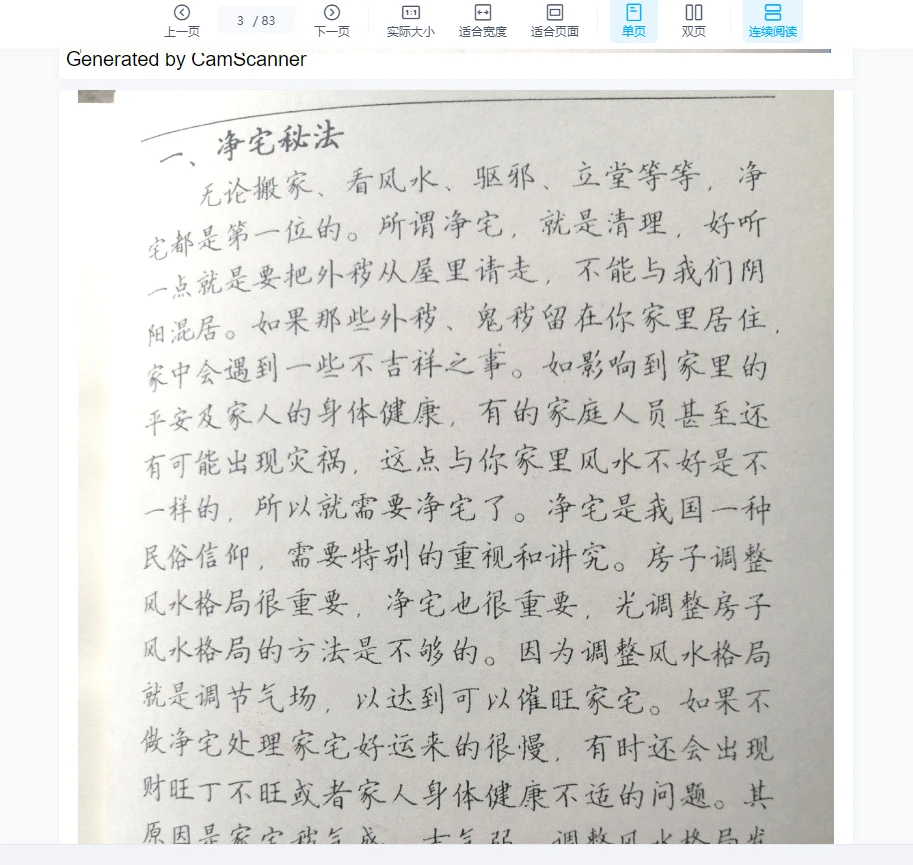 上一页
3 / 83
下一页
实际大小
适合宽度
适合页面
单页
双页
连续阅读
Generated by CamScanner
一、净宅秘法
无论搬家、看风水、驱邪、立堂等等，净
宅都是第一位的。所谓净宅，就是清理，好听
一点就是要把外秽从屋里请走，不能与我们阴
阳混居。如果那些外秽、鬼秽留在你家里居住，
家中会遇到一些不吉祥之事。如影响到家里的
平安及家人的身体健康，有的家庭人员甚至还
有可能出现灾祸，这点与你家里风水不好是不
一样的，所以就需要净宅了。净宅是我国一种
民俗信仰，需要特别的重视和讲究。房子调整
风水格局很重要，净宅也很重要，光调整房子
风水格局的方法是不够的。因为调整风水格局
就是调节气场，以达到可以催旺家宅。如果不
做净宅处理家宅好运来的很慢，有时还会出现
财旺丁不旺或者家人身体健康不适的问题。其
原因是家宅秽气盛，吉气弱，调整风水格局发